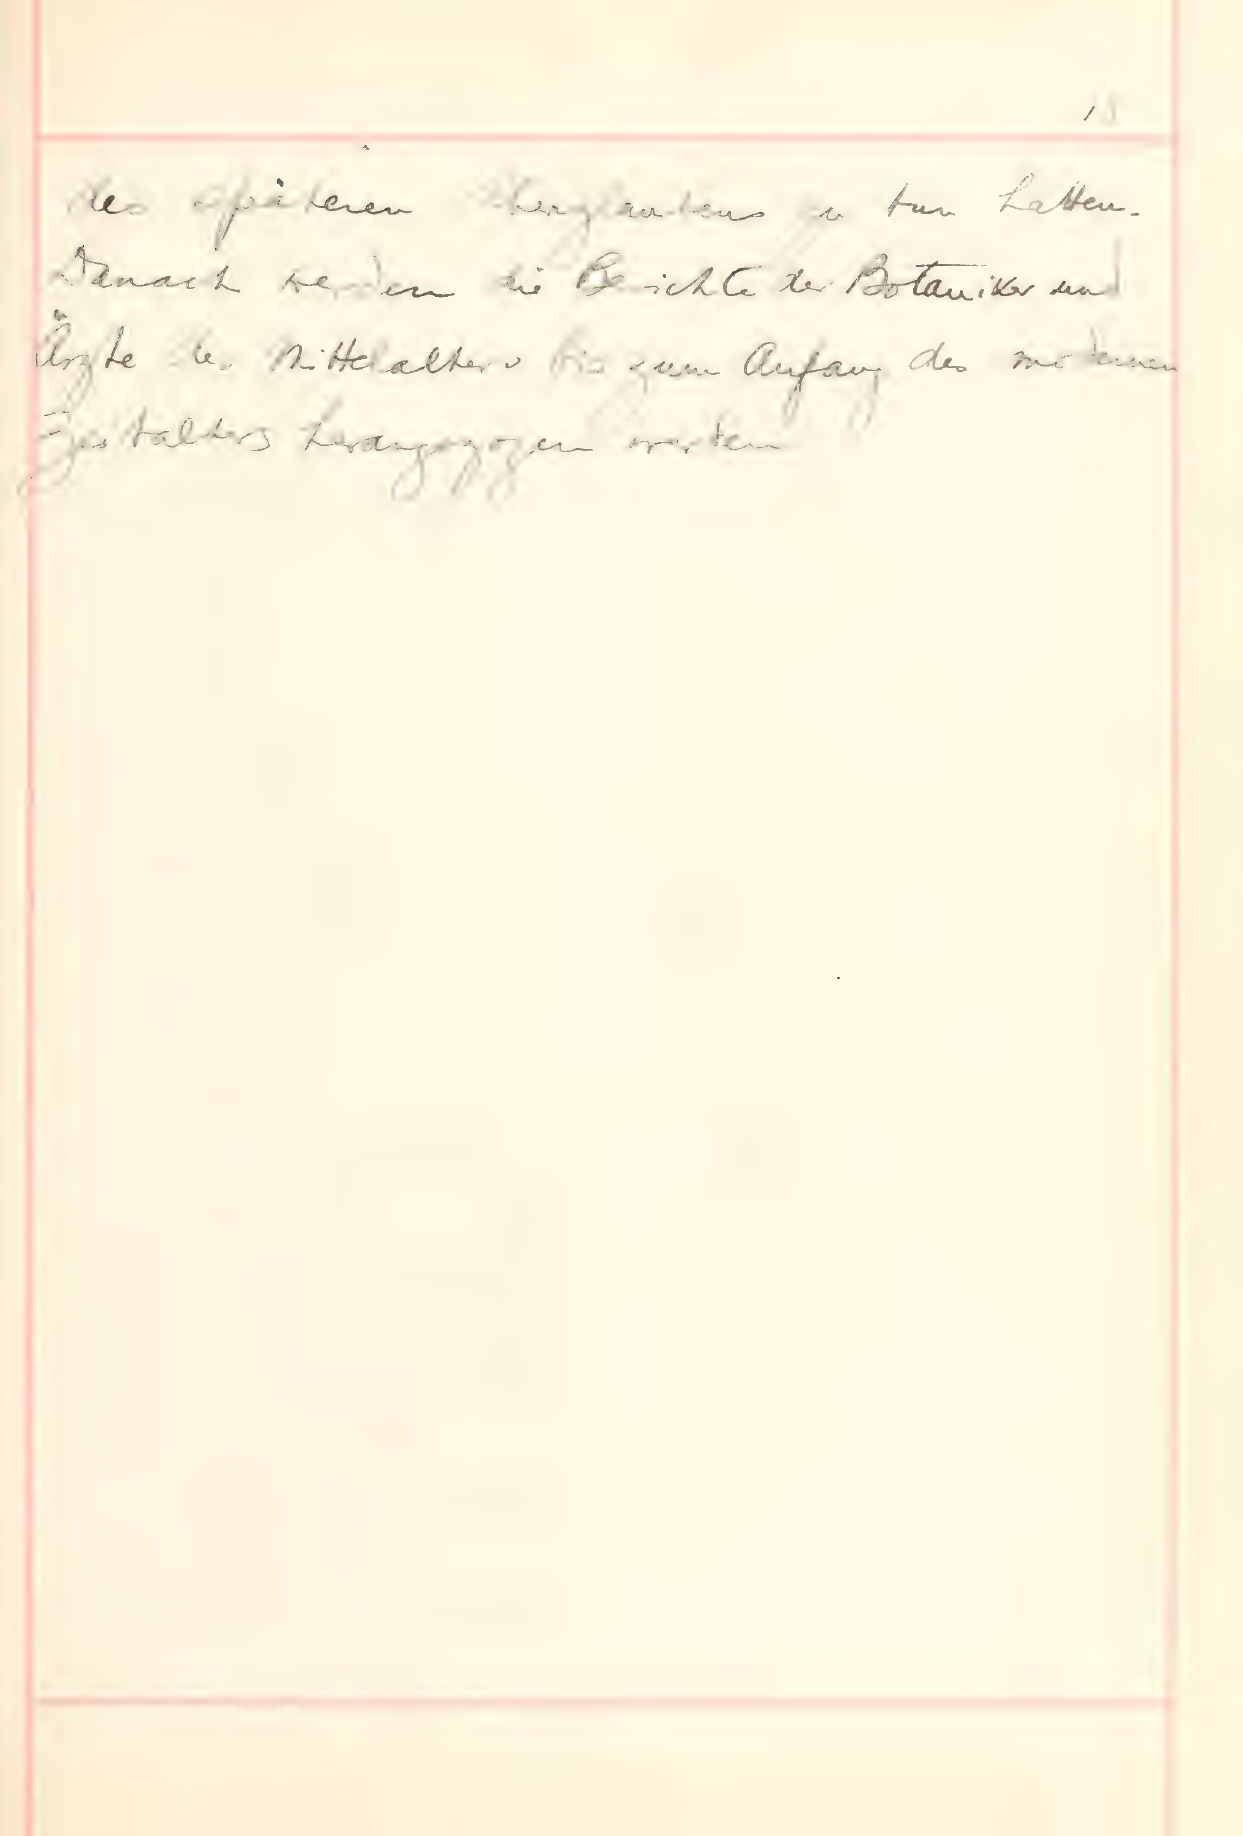 18
des späteren Aberglaubens zu tun hatten.
Danach werden die Berichte der Botaniker und
Ärzte des Mittelalters bis zum Anfang des modernen
Zeitalters herangezogen werden